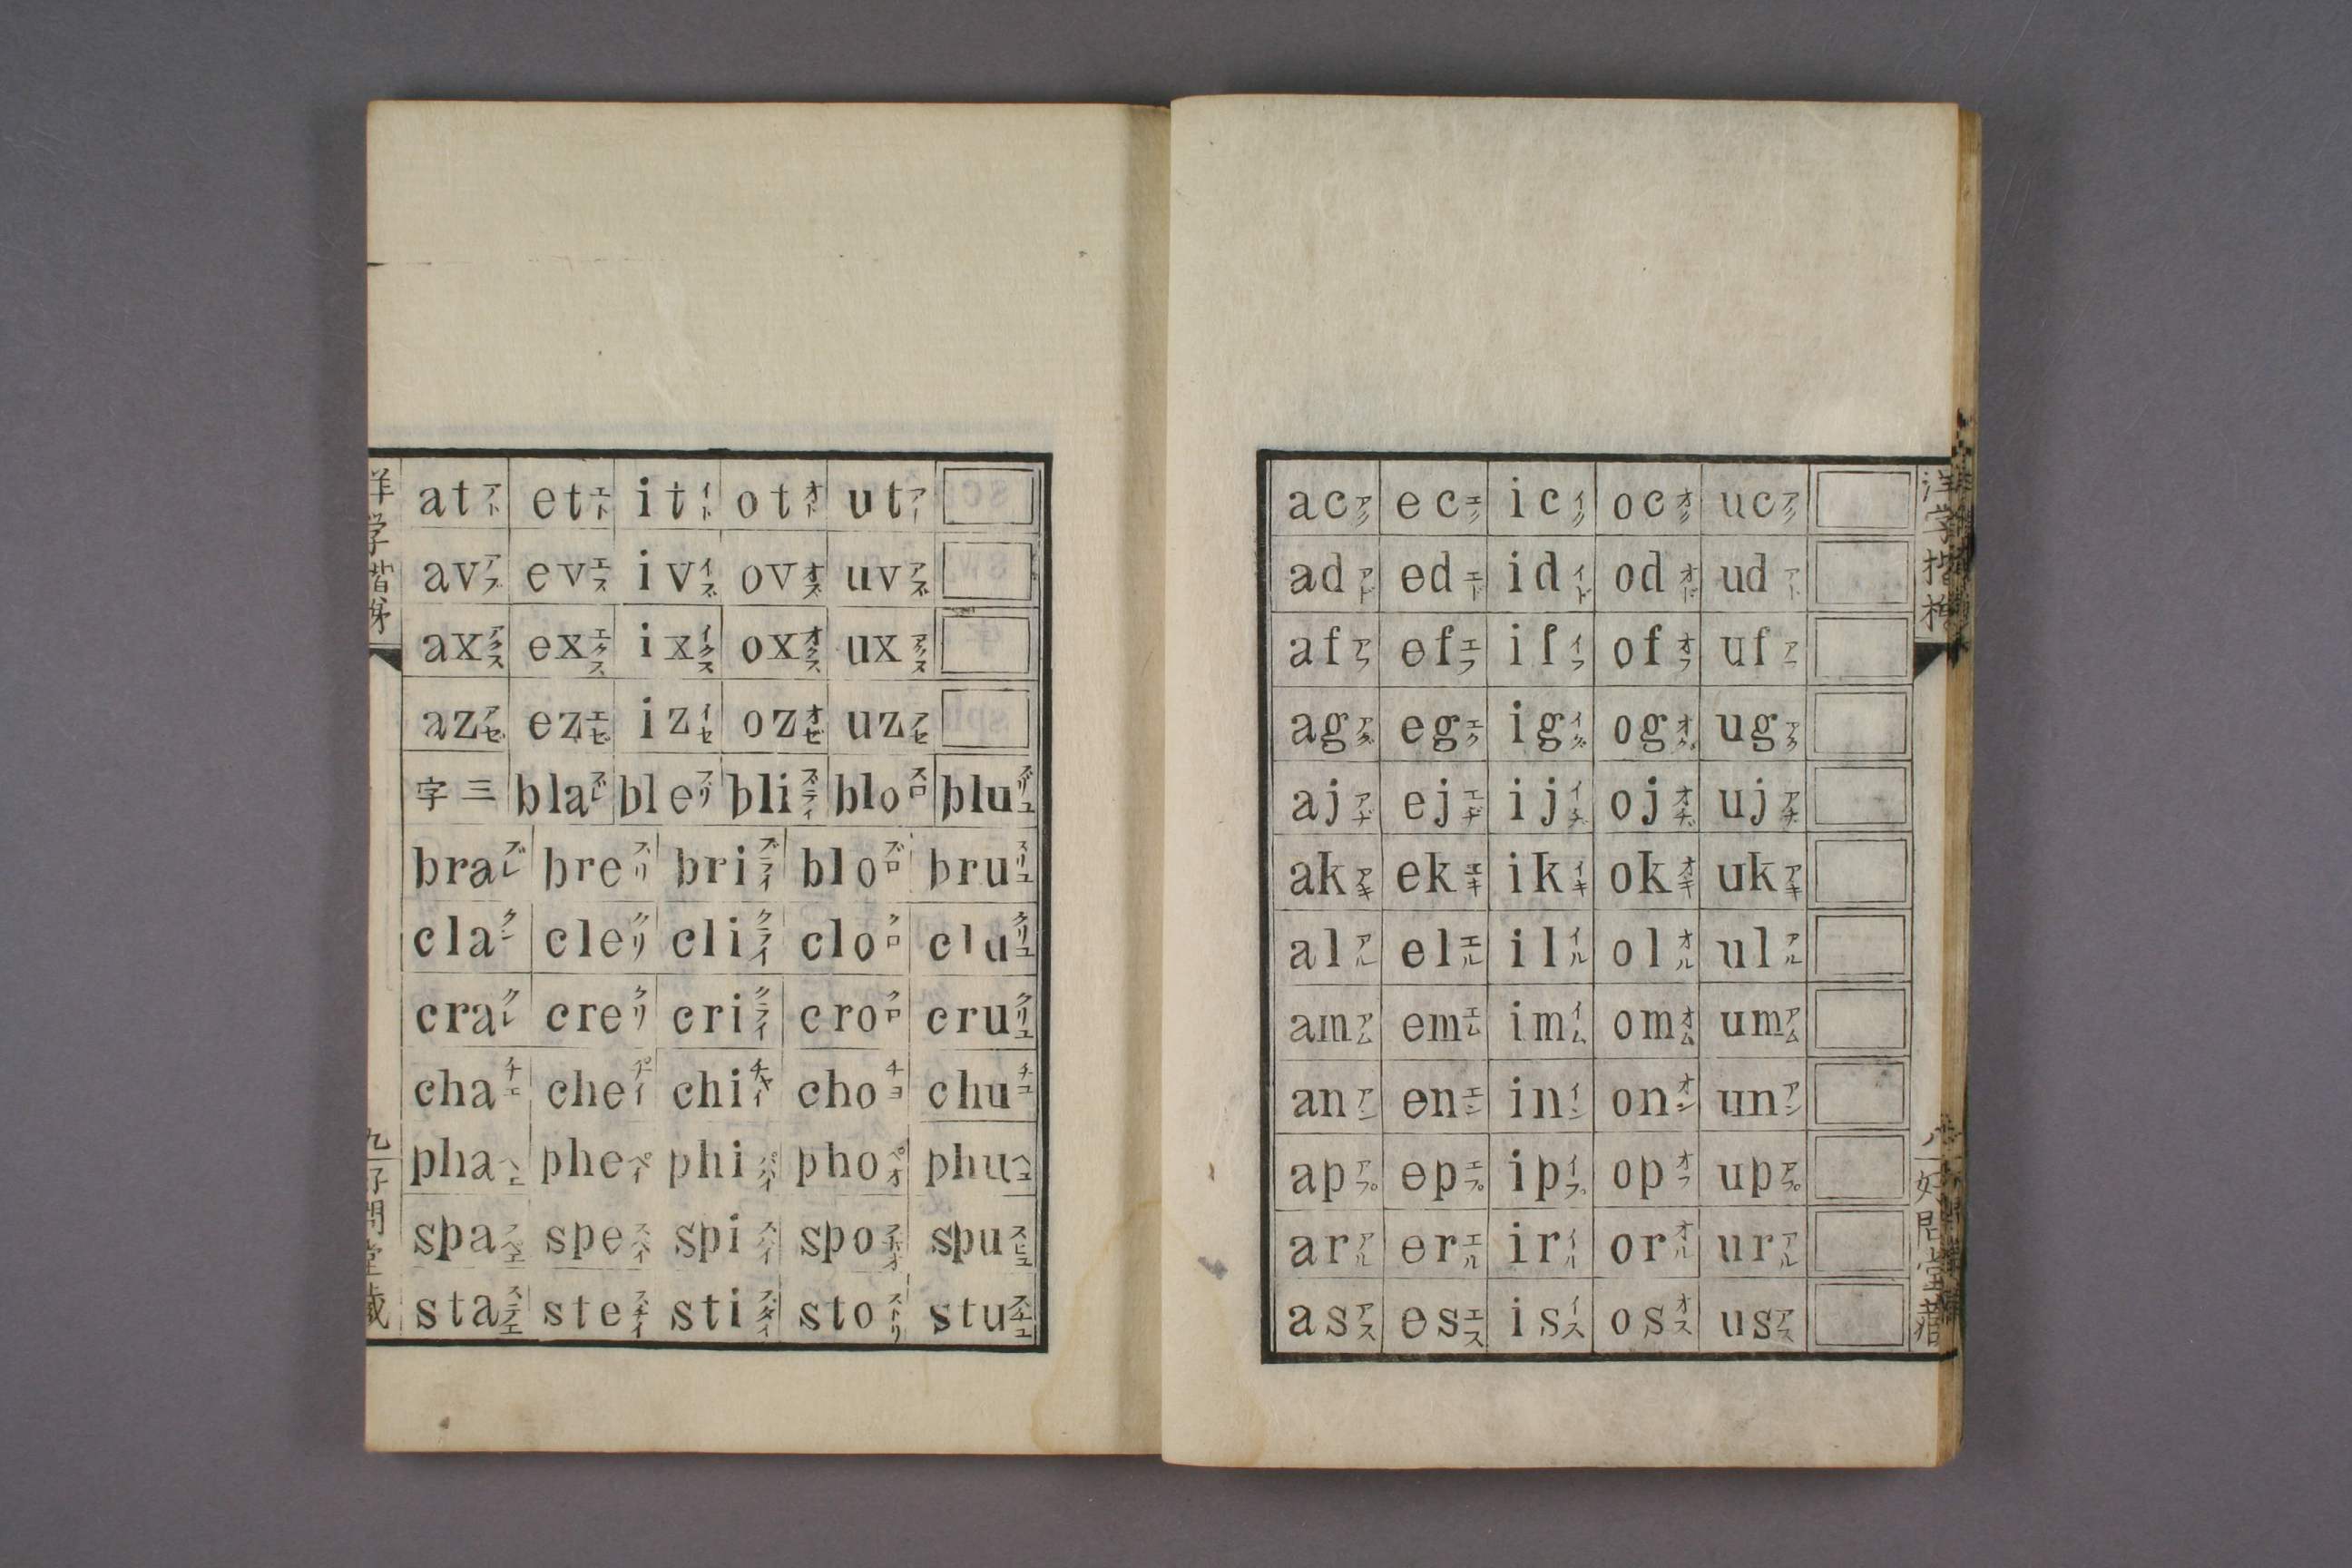 洋学指
ac アク ec エク ic イク oc オク uc アク
ad アド ed エド id イド od オド ud アド
af アフ ef エフ if イフ of オフ uf アフ
ag アグ eg エク ig イグ og オグ ug アク
aj アヂ ej エヂ ij イヂ oj オヂ uj アヂ
ak アキ ek エキ ik イキ ok オキ uk アキ
al アル el エル il イル ol オル ul アル
am アム em エム im イム om オム um アム
an アン en エン in イン on オン un アン
ap アプ ep エプ ip イプ op オフ up アプ
ar アル er エル ir イル or オル ur アル
as アス es エス is イス os オス us アス
八 好問堂
at アト et エト it イト ot オト ut アト
av アブ ev エス iv イズ ov オズ uv アズ
ax アクス ex エクス ix イクス ox オクス ux アクス
az アゼ ez エゼ iz イゼ oz オゼ uz アゼ
字三 bla ブレ ble ブリ bli ブライ blo ブロ blu ブリユ
bra ブレ bre ブリ bri ブライ blo ブロ bru ブリユ
cla クレ cle クリ cli クライ clo クロ clu クリユ
cra クレ cre クリ cri クライ cro クロ cru クリユ
cha チエ che chi チヤイ cho チヨ chu チユ
pha ヘエ phe ペイ phi パイ pho ペオ phu ヘユ
spa スペエ spe スペイ spi スパイ spo spu スピユ
sta ステエ ste スチイ sti スタイ sto ストリ stu スチユ
洋学階梯
九 好問堂蔵